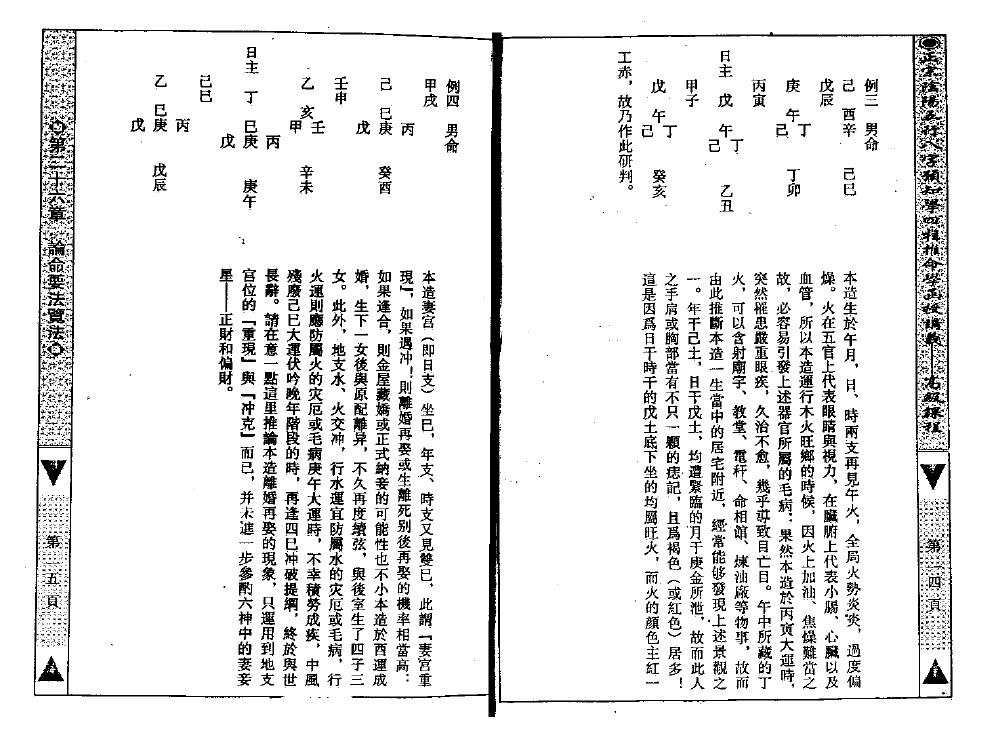 例三 男命
己酉辛 己巳
戊辰
庚午丁己 丁卯
丙寅
日主 戊午丁己 乙丑
甲子
戊午丁己 癸亥
工赤，故乃作此研判。
本造生於午月，日、時兩支再見午火，全局火勢炎炎，過度偏
燥。火在五官上代表眼睛與視力，在臟腑上代表小腸、心臟以及
血管，所以本造運行木火旺鄉的時候，因火上加油、焦燥難當之
故，必容易引發上述器官所屬的毛病；果然本造於丙寅大運時，
突然罹患嚴重眼疾，久治不愈，幾乎導致目亡目。午中所藏的丁
火，可以含射廟宇、教堂、電杆、命相館、煉油廠等物事，故而
由此推斷本造一生當中的居宅附近，經常能够發現上述景觀之
一。年干己土，日干戊土，均遭緊臨的月干庚金所泄，故而此人
之手肩或胸部當有不只一顆的痣記，且爲褐色（或紅色）居多！
這是因爲日干時干的戊土底下坐的均屬旺火，而火的顏色主紅一
第一四頁
例四 男命
甲戌
己巳庚丙戊 癸酉
壬申
乙亥壬甲 辛未
日主 丁巳庚丙戊 庚午
己巳
乙巳庚丙戊 戊辰
本造妻宮（即日支）坐巳，年支、時支又見雙巳，此謂「妻宮重
現」，如果遇冲！則離婚再娶或生離死別後再娶的機率相當高；
如果逢合，則金屋藏嬌或正式納妾的可能性也不小本造於酉運成
婚，生下一女後與原配離异，不久再度續弦，與後室生了四子三
女。此外，地支水、火交冲，行水運宜防屬水的灾厄或毛病，行
火運則應防屬火的灾厄或毛病庚午大運時，不幸積勞成疾，中風
殘廢己巳大運伏吟晚年階段的時，再逢四巳冲破提綱，終於與世
長辭。請在意一點這里推論本造離婚再娶的現象，只運用到地支
宮位的「重現」與「冲克」而已，并未進一步參酌六神中的妻妾
星——正財和偏財。
第二十六章 論命要法寶法
第 五頁